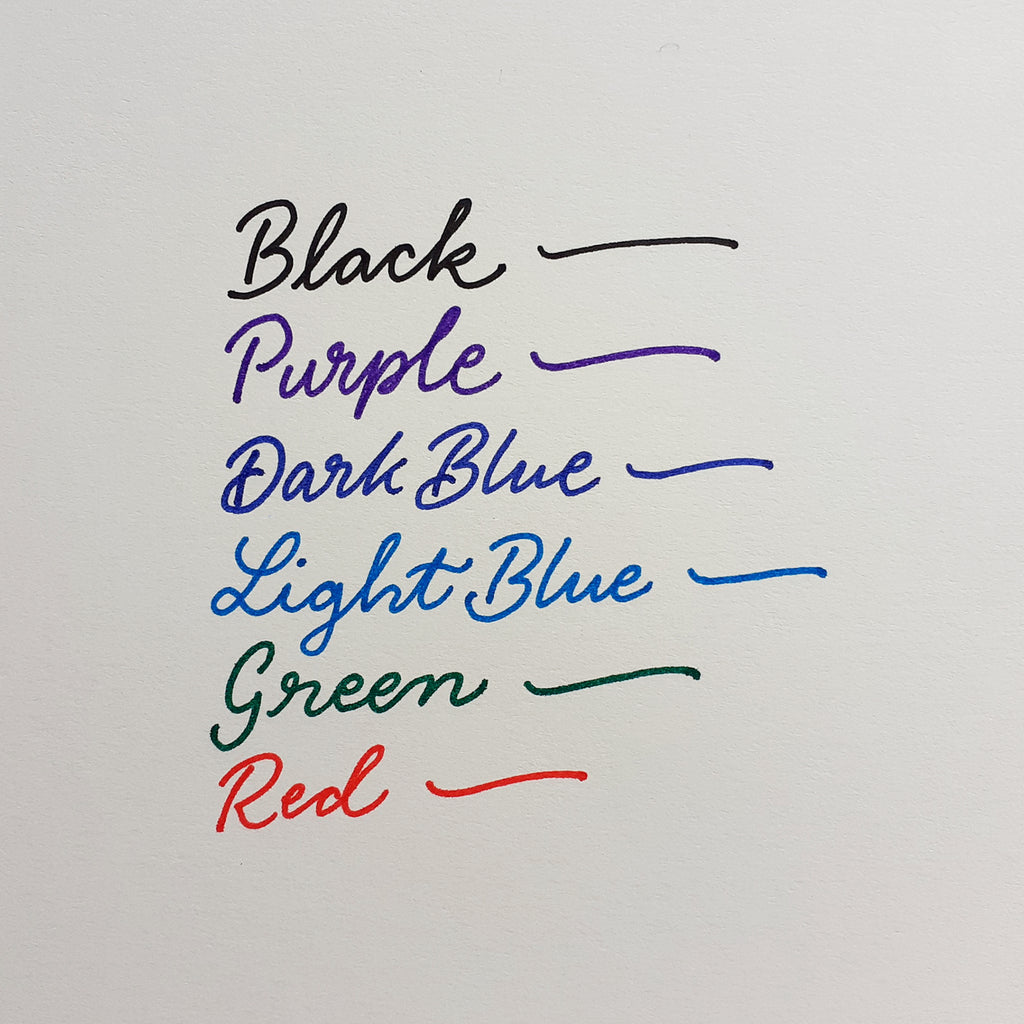 Black
Purple
Dark Blue
Light Blue
Green
Red